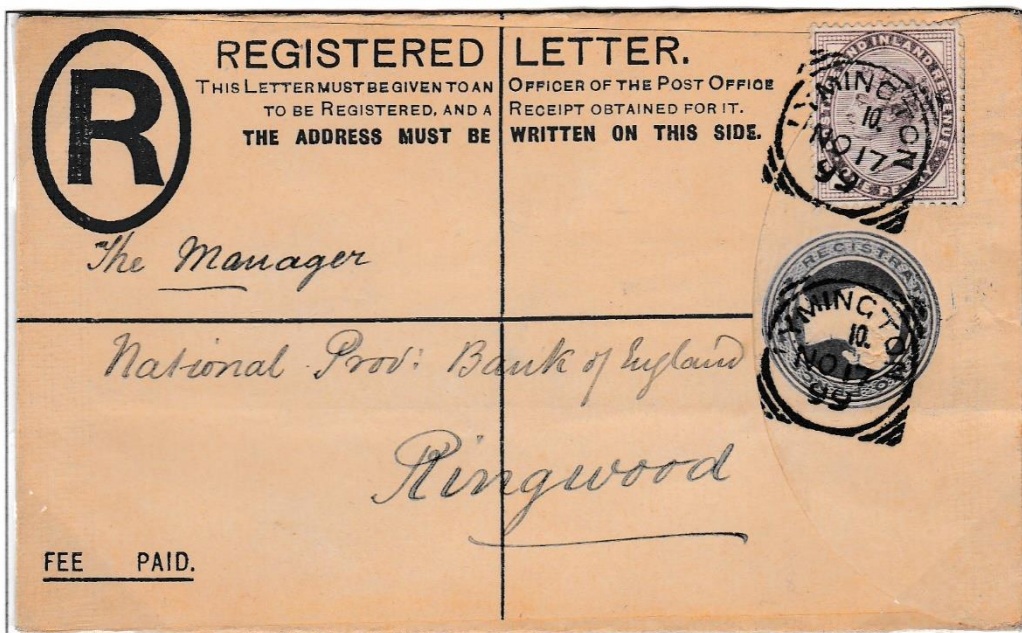 R
REGISTERED LETTER.
THIS LETTER MUST BE GIVEN TO AN OFFICER OF THE POST OFFICE
TO BE REGISTERED, AND A RECEIPT OBTAINED FOR IT.
THE ADDRESS MUST BE WRITTEN ON THIS SIDE.
AND INLAND REVENUE
PENNY
LYMINGTON
10.
NO 17
99
The Manager
REGISTRA
LYMINGTON
10.
NO 17
99
National Prov: Bank of England
Ringwood
FEE PAID.